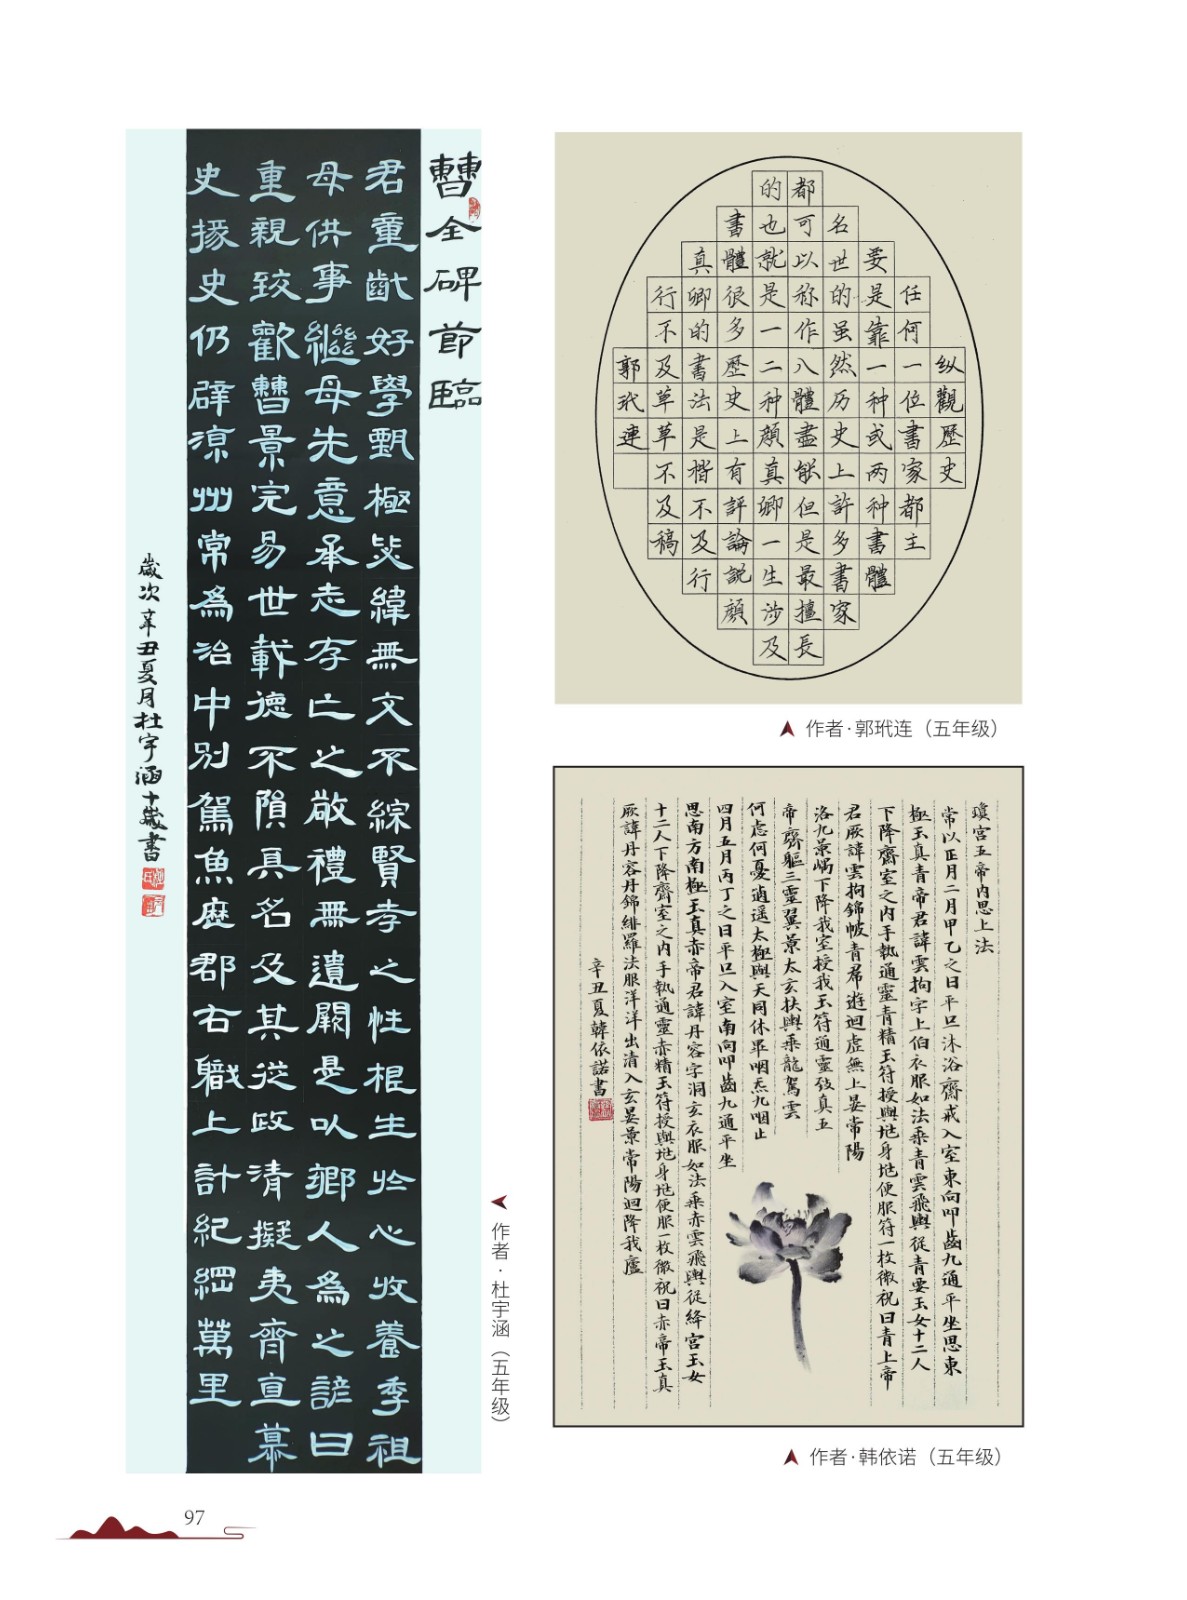 曹全碑節臨
君童齔好學甄極毖緯無文不綜賢孝之性根生於心收養季祖
母供事繼母先意承志存亡之敬禮無遺闕是以鄉人為之諺曰
重親致歡曹景完易世載德不隕其名及其從政清擬夷齊直慕
史掾史仍辟涼州常為治中別駕魚歷郡右職上計紀綱萬里
歲次辛丑夏月杜宇涵十歲書
作者·杜宇涵（五年级）
纵觀歷史
任何一位書家都主
要是靠一种或两种書體
名世的虽然历史上許多書家
都可以称作八體盡能但是最擅長
的也就是一二种顏真卿一生涉及
書體很多歷史上有評論說顏
真卿的書法是楷不及行
行不及草草不及稿
郭玳連
作者·郭玳连（五年级）
瓊宮五帝內思上法
常以正月二月甲乙之日平旦沐浴齋戒入室東向叩齒九通平坐思東
極玉真青帝君諱雲拘字上伯衣服如法乘青雲飛輿從青要玉女十二人
下降齋室之內手執通靈青精玉符授與地身地便服符一枚微祝曰青上帝
君厥諱雲拘錦帔青帬遊迴虛無上晏常陽
洛九景嵎下降我室授我玉符通靈致真五
帝齊軀三靈翼景太玄扶輿乘龍駕雲
何慮何憂逍遥太極與天同休畢咽炁九咽止
四月五月丙丁之日平旦入室南向叩齒九通平坐
思南方南極玉真赤帝君諱丹容字洞玄衣服如法乘赤雲飛輿從絳宮玉女
十二人下降齋室之內手執通靈赤精玉符授與地身地便服一枚微祝曰赤帝玉真
厥諱丹容丹錦緋羅法服洋洋出清入玄晏景常陽迴降我廬
辛丑夏韓依諾書
作者·韩依诺（五年级）
97